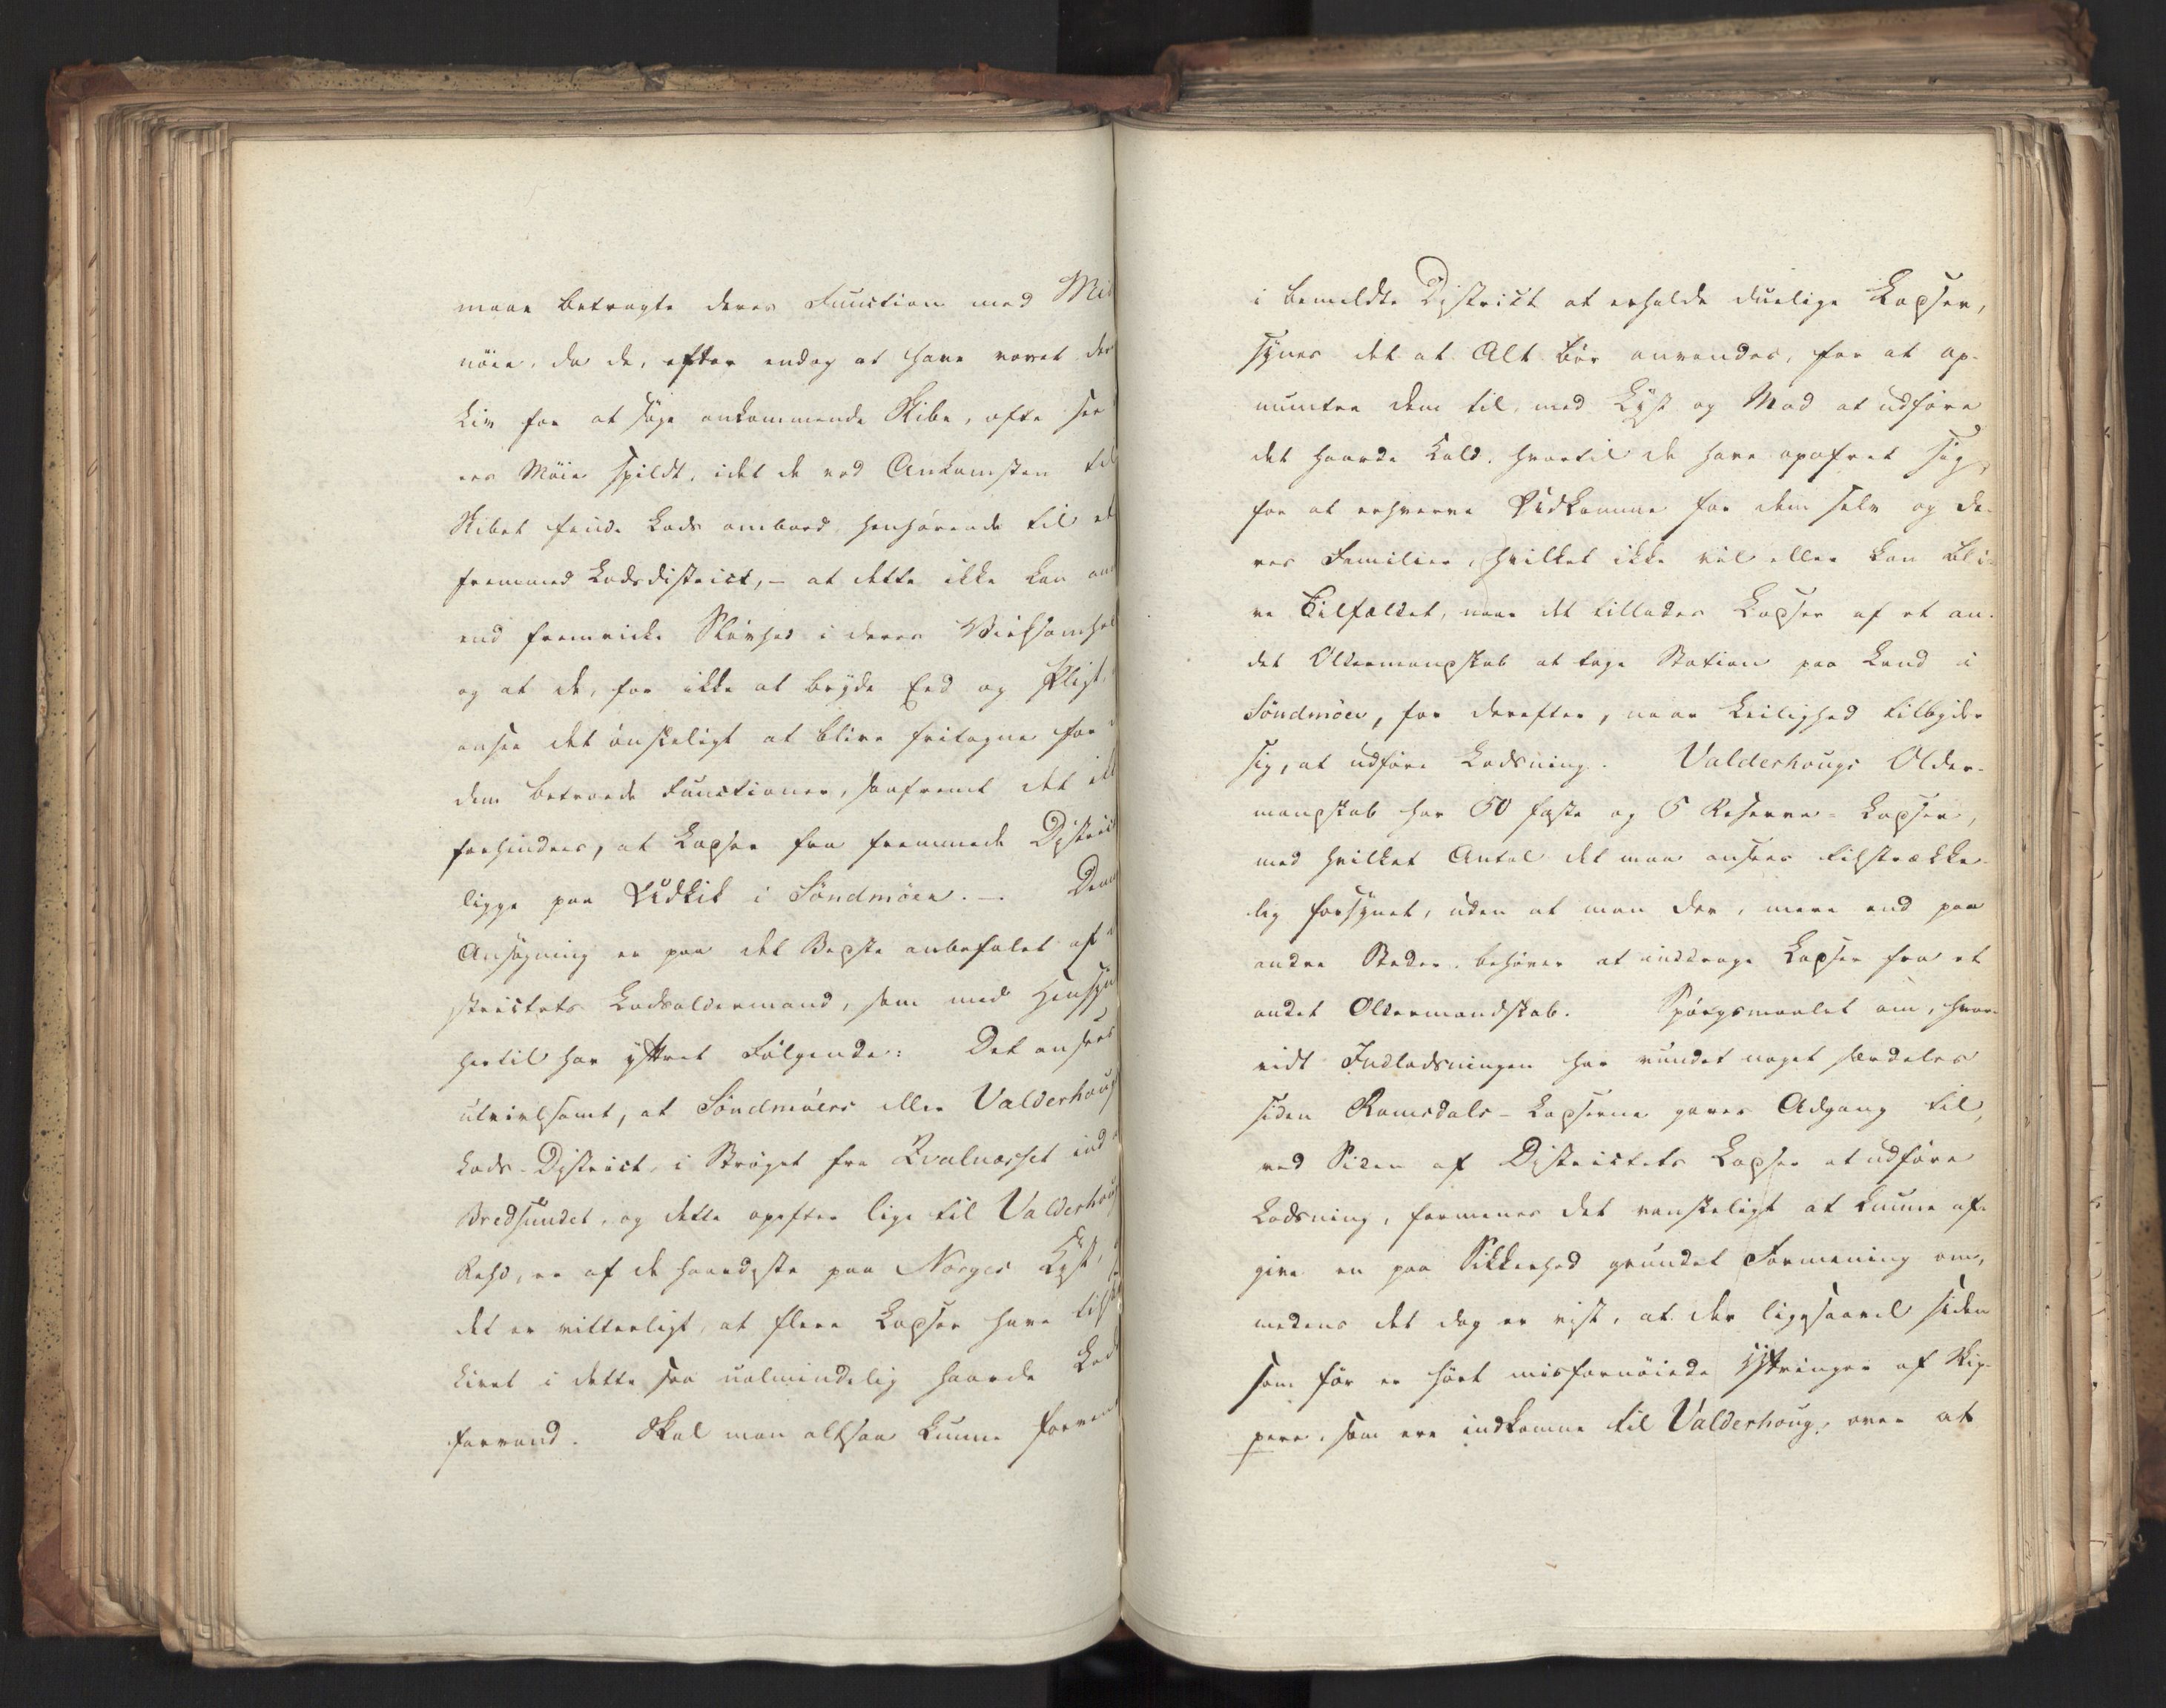 maae betragte deres Function med Mis
nöie, da de, efter endog at have vovet der
Liv for at søge ankommende Skibe, ofte see
res Möie spildt, idet de ved Ankomsten til
Skibet finde Lods ombord henhørende til et
fremmed Lodsdistrict, – at dette ikke kan an
end fremvirke Slövhed i deres Virksomhed
og at de, for ikke at bryde Eed og Pligt,
ansee det önskeligt at blive fritagne for
dem betroede Functioner, saafremt det ik
forhindres, at Lodser fra fremmede Distric
ligge paa Udkik i Söndmöer. – Denne
Ansögning er paa det Bedste anbefalet af
strictets Lodsoldermand, som med Hensyn
hertil har yttret Følgende: Det ansees
utvivlsomt, at Söndmöers eller Valderhoug
Lods-District, i Ströget fra Qvalnæsset ind
Bredsundet, og dette opefter lige til Valderhoug
Rehd, er af de haardeste paa Norges Kyst,
det er vitterligt, at flere Lodser have tils
Livet i dette saa ualmindelig haarde Lods
farvand. Skal man altsaa kunne forven
i bemeldte District at erholde duelige Lodser,
synes det at Alt bör anvendes, for at op-
muntre dem til, med Lyst og Mod at udføre
det haarde Kald, hvortil de have opofret sig,
for at erhverve Udkomme for dem selv og de-
res Familier, hvilket ikke vil eller kan bli-
ve Tilfældet, naar det tillades Lodser af et an-
det Oldermandskab at tage Station paa Land i
Söndmöer, for derefter, naar Leilighed tilbyder
sig, at udføre Lodsning. Valderhougs Older-
mandskab har 50 faste og 5 Reserve-Lodser,
med hvilket Antal det maa ansees tilstrække-
lig forsynet, uden at man der, mere end paa
andre Steder, behöver at inddrage Lodser fra et
andet Oldermandskab. Spörgsmaalet om, hvor-
vidt Indlodsningen har vundet noget særdeles
siden Romsdals-Lodserne gaves Adgang til,
ved Siden af Districtets Lodser at udføre
Lodsning, formenes det vanskeligt at kunne af-
give en paa Sikkerhed grundet Formening om,
medens det dog er vist, at der ligesaavel siden
som før er hört misfornöiede Yttringer af Skip-
pere, som ere indkomne til Valderhoug, over at